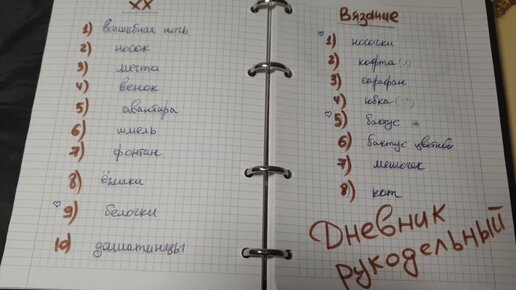 XX
1) волшебная ночь
2) носок
3) мечта
4) венок
5) авантюра
6) шмель
7) фонтан
8) ёжики
♡ 9) белочки
10) далматинцы
Вязание
♡ 1) носочки
2) кофта (л)
3) сарафан
4) юбка (С)
♡ 5) бактус *
6) бактус цветной
7) мешочек
8) кот
Дневник
рукодельный